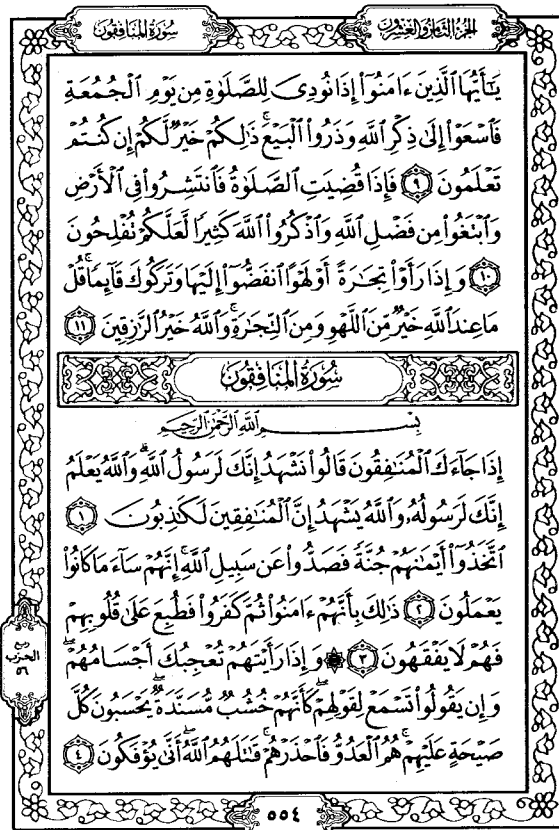 سُورَةُ المُنَافِقُون
الجُزْءُ الثَّامِنُ وَالعِشْرُونَ
يَٰٓأَيُّهَا ٱلَّذِينَ ءَامَنُوٓا۟ إِذَا نُودِىَ لِلصَّلَوٰةِ مِن يَوْمِ ٱلْجُمُعَةِ
فَٱسْعَوْا۟ إِلَىٰ ذِكْرِ ٱللَّهِ وَذَرُوا۟ ٱلْبَيْعَ ۚ ذَٰلِكُمْ خَيْرٌ لَّكُمْ إِن كُنتُمْ
تَعْلَمُونَ ٩ فَإِذَا قُضِيَتِ ٱلصَّلَوٰةُ فَٱنتَشِرُوا۟ فِى ٱلْأَرْضِ
وَٱبْتَغُوا۟ مِن فَضْلِ ٱللَّهِ وَٱذْكُرُوا۟ ٱللَّهَ كَثِيرًا لَّعَلَّكُمْ تُفْلِحُونَ
١٠ وَإِذَا رَأَوْا۟ تِجَٰرَةً أَوْ لَهْوًا ٱنفَضُّوٓا۟ إِلَيْهَا وَتَرَكُوكَ قَآئِمًا ۚ قُلْ
مَا عِندَ ٱللَّهِ خَيْرٌ مِّنَ ٱللَّهْوِ وَمِنَ ٱلتِّجَٰرَةِ ۚ وَٱللَّهُ خَيْرُ ٱلرَّٰزِقِينَ ١١
سُورَةُ المُنَافِقُون
بِسْمِ ٱللَّهِ ٱلرَّحْمَٰنِ ٱلرَّحِيمِ
إِذَا جَآءَكَ ٱلْمُنَٰفِقُونَ قَالُوا۟ نَشْهَدُ إِنَّكَ لَرَسُولُ ٱللَّهِ ۗ وَٱللَّهُ يَعْلَمُ
إِنَّكَ لَرَسُولُهُۥ وَٱللَّهُ يَشْهَدُ إِنَّ ٱلْمُنَٰفِقِينَ لَكَٰذِبُونَ ١
ٱتَّخَذُوٓا۟ أَيْمَٰنَهُمْ جُنَّةً فَصَدُّوا۟ عَن سَبِيلِ ٱللَّهِ ۚ إِنَّهُمْ سَآءَ مَا كَانُوا۟
يَعْمَلُونَ ٢ ذَٰلِكَ بِأَنَّهُمْ ءَامَنُوا۟ ثُمَّ كَفَرُوا۟ فَطُبِعَ عَلَىٰ قُلُوبِهِمْ
فَهُمْ لَا يَفْقَهُونَ ٣ ۞ وَإِذَا رَأَيْتَهُمْ تُعْجِبُكَ أَجْسَامُهُمْ ۖ
وَإِن يَقُولُوا۟ تَسْمَعْ لِقَوْلِهِمْ ۖ كَأَنَّهُمْ خُشُبٌ مُّسَنَّدَةٌ ۖ يَحْسَبُونَ كُلَّ
صَيْحَةٍ عَلَيْهِمْ ۚ هُمُ ٱلْعَدُوُّ فَٱحْذَرْهُمْ ۚ قَٰتَلَهُمُ ٱللَّهُ ۖ أَنَّىٰ يُؤْفَكُونَ ٤
ربع
الحزب
٥٦
٥٥٤